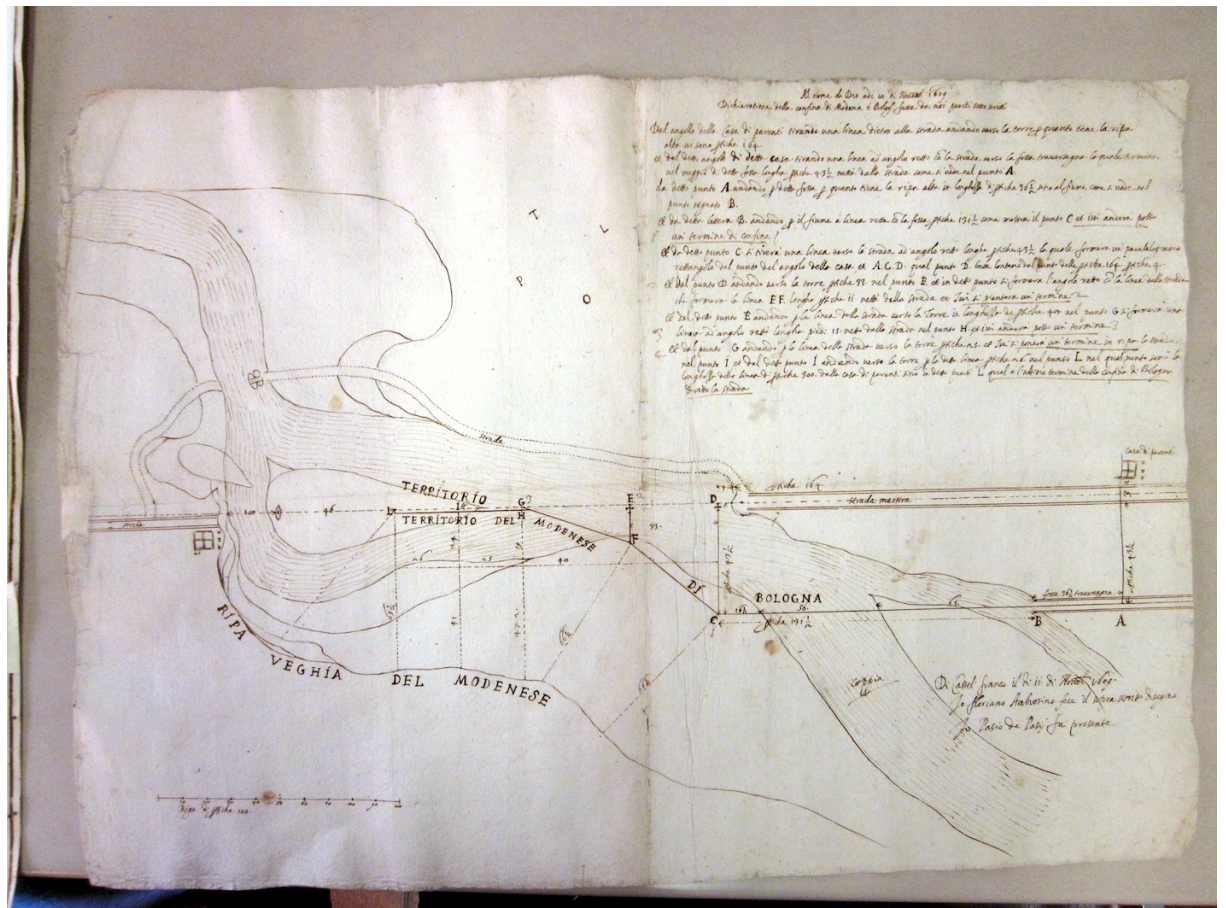 Al nome di Dio adi 10 di 1609
Dichiaratione della confina di Modena e Bolog.a fatta da noi periti sotto scritti
Dal angollo della Casa di parenti tirando una linea dietro alla strada andando verso la torre p quanto tiene la ripa
alta vi sono ptiche 164
et dal detto angolo di detta casa tirando una linea ad angolo retto co la strada verso la fossa traversagna la quale termina
nel meggio di detta fossa longha ptiche 43½ netti dalla strada come si vede nel punto A.
da detto punto A andando p detta fossa p quanto tiene la ripa alta in longhezza di ptiche 36½ sino al fiume come si vede nel
punto segnato B.
et da detta lettera B. andando p il fiume a linea retta co la fossa ptiche 131½ come mostra il punto C et ivi ancora posto
un termine di confine
et da detto punto C si tirera una linea verso la strada ad angolo retto longha ptiche 43½ la quale formara un paralelogramo
rettangolo dal punto del angolo della casa et A.C.D. qual punto D. sara lontano dal punto delle ptiche 164 ptiche 4
et dal punto D andando verso la torre ptiche 33 nel punto E et in detto punto si formara l'angolo retto co la linea della strada
che formara la linea EF. longha ptiche 11 netti dalla strada et ivi si piantara un termine 2
et dal detto punto E andando p la linea della strada verso la Torre in longhezza di ptiche 40 nel punto G si formara una
3 linea ad angolo retto longha piedi 15 netti dalla strada nel punto H et ivi ancora posto un termine 3
et dal punto G andando p la linea della strada verso la torre ptiche 25 et ivi si ponera un termine in ripa la strada
nel punto I et dal detto punto I andando verso la torre p la detta linea ptiche 26 nel punto L nel qual punto sara la
longhezza della linea di ptiche 300 dalla casa di parenti sino a detto punto L qual è l'ultimo termine della confina di Bologna
verso la strada
T
L
P
O
strada
Casa di parenti
ptiche 164
strada maestra
TERRITORIO
G
E
D
L
TERRITORIO DEL MODENESE
H
100
46
33
F
ptiche 43½
ptiche 43½
26
25
40
DI
BOLOGNA
fossa 36½ traversagna
C
16½
56
64
B
A
ptiche 131½
strada
RIPA VEGHIA DEL MODENESE
coppia
Di Castel franco il di 11 di 1609
Io Floriano Ambrosino fece il sopra scritto disegno
Io Pasio de Pasij fui presente
10 20 30 40 50 60 70 80 90 100
Riga di ptiche 100